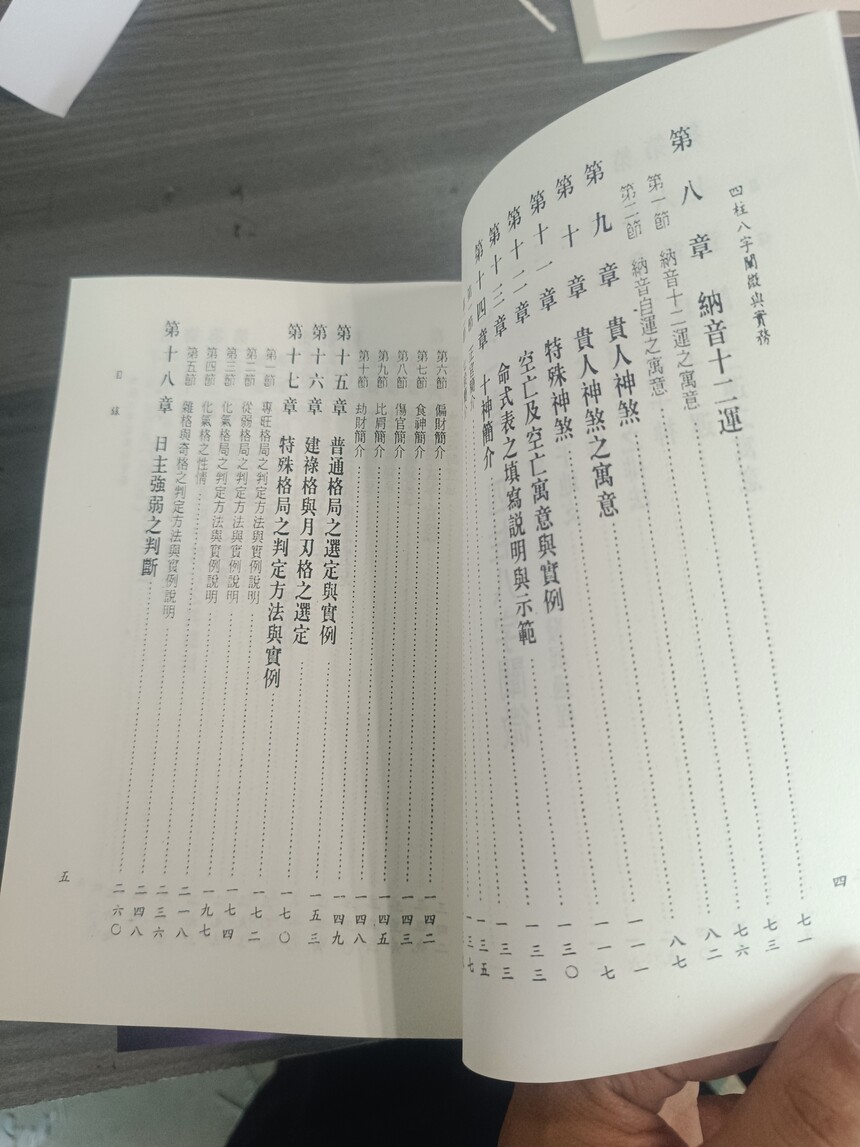 四柱八字闡微與實務
四
第八章 納音十二運 七一
第一節 納音十二運之寓意 七三
第二節 納音自運之寓意 七六
第九章 貴人神煞 八二
第十章 貴人神煞之寓意 八七
第十一章 特殊神煞 一一一
第十二章 空亡及空亡寓意與實例 一一七
第十三章 命式表之填寫説明與示範 一三〇
第十四章 十神簡介 一三三
正官簡介 一三三
一三五
一三七
第六節 偏財簡介 一四二
第七節 食神簡介 一四三
第八節 傷官簡介 一四五
第九節 比肩簡介 一四八
第十節 劫財簡介 一四九
第十五章 普通格局之選定與實例 一五三
第十六章 建祿格與月刃格之選定 一七〇
第十七章 特殊格局之判定方法與實例 一七二
第一節 專旺格局之判定方法與實例說明 一七四
第二節 從弱格局之判定方法與實例說明 一九七
第三節 化氣格局之判定方法與實例說明 二一八
第四節 化氣格之性情 二三六
第五節 雜格與奇格之判定方法與實例說明 二四八
第十八章 日主強弱之判斷 二六〇
目錄
五